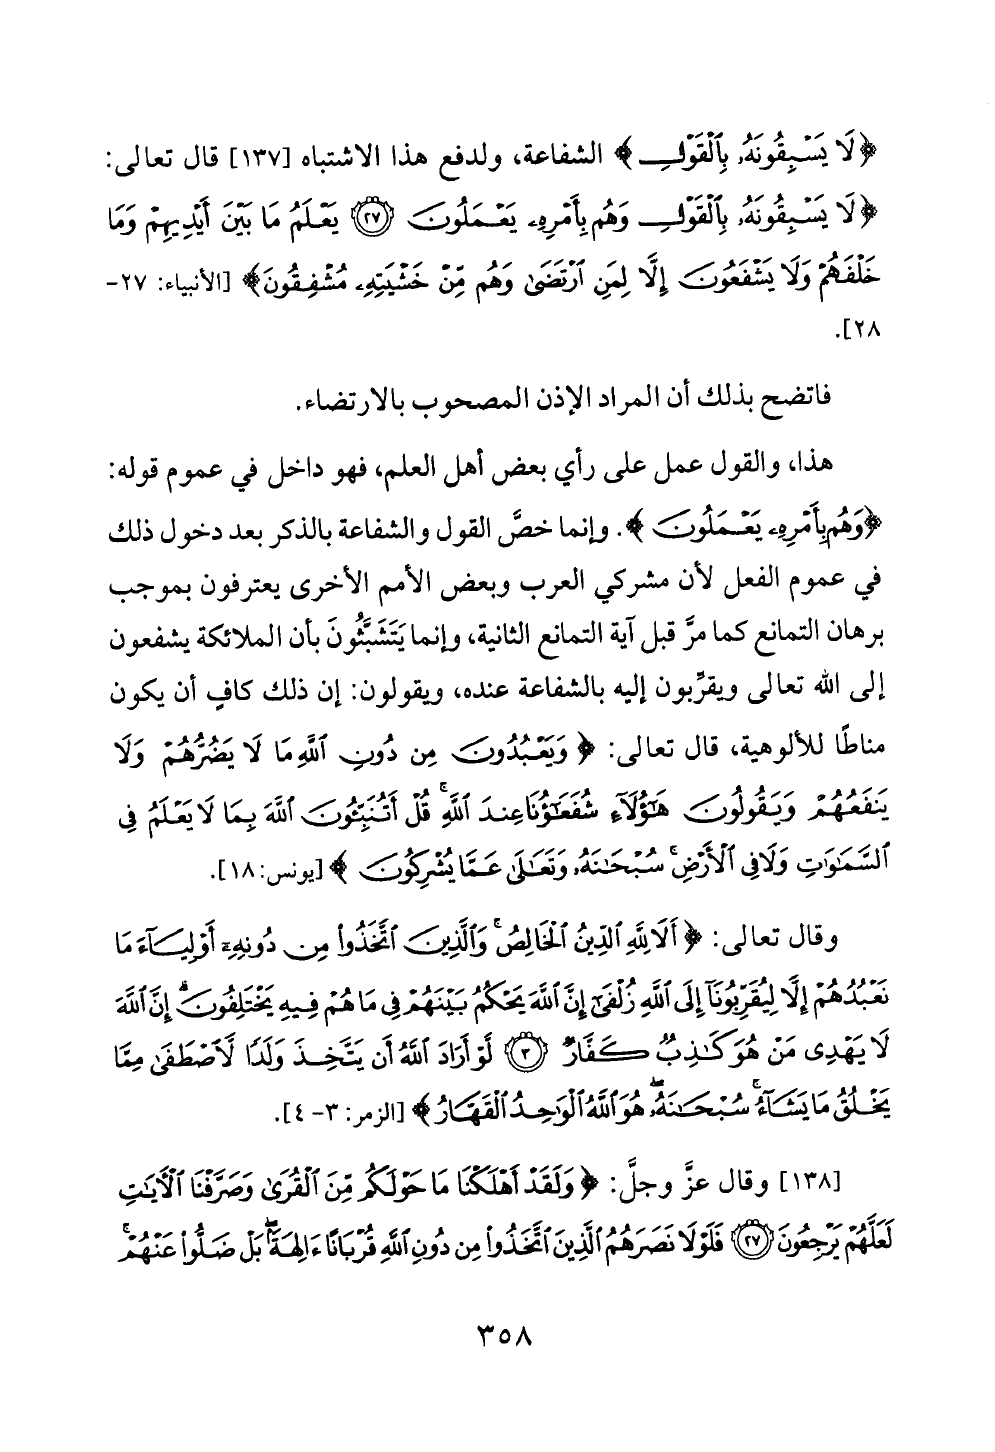 ﴿لَا يَسْبِقُونَهُۥ بِٱلْقَوْلِ﴾ الشفاعة، ولدفع هذا الاشتباه [١٣٧] قال تعالى:
﴿لَا يَسْبِقُونَهُۥ بِٱلْقَوْلِ وَهُم بِأَمْرِهِۦ يَعْمَلُونَ ٢٧ يَعْلَمُ مَا بَيْنَ أَيْدِيهِمْ وَمَا
خَلْفَهُمْ وَلَا يَشْفَعُونَ إِلَّا لِمَنِ ٱرْتَضَىٰ وَهُم مِّنْ خَشْيَتِهِۦ مُشْفِقُونَ﴾ [الأنبياء: ٢٧-
٢٨].
فاتضح بذلك أن المراد الإذن المصحوب بالارتضاء.
هذا، والقول عمل على رأي بعض أهل العلم، فهو داخل في عموم قوله:
﴿وَهُم بِأَمْرِهِۦ يَعْمَلُونَ﴾. وإنما خصَّ القول والشفاعة بالذكر بعد دخول ذلك
في عموم الفعل لأن مشركي العرب وبعض الأمم الأخرى يعترفون بموجب
برهان التمانع كما مرَّ قبل آية التمانع الثانية، وإنما يَتَشَبَّثُونَ بأن الملائكة يشفعون
إلى الله تعالى ويقرِّبون إليه بالشفاعة عنده، ويقولون: إن ذلك كافٍ أن يكون
مناطًا للألوهية، قال تعالى: ﴿وَيَعْبُدُونَ مِن دُونِ ٱللَّهِ مَا لَا يَضُرُّهُمْ وَلَا
يَنفَعُهُمْ وَيَقُولُونَ هَٰٓؤُلَآءِ شُفَعَٰٓؤُنَا عِندَ ٱللَّهِ ۚ قُلْ أَتُنَبِّئُونَ ٱللَّهَ بِمَا لَا يَعْلَمُ فِى
ٱلسَّمَٰوَٰتِ وَلَا فِى ٱلْأَرْضِ ۚ سُبْحَٰنَهُۥ وَتَعَٰلَىٰ عَمَّا يُشْرِكُونَ﴾ [يونس: ١٨].
وقال تعالى: ﴿أَلَا لِلَّهِ ٱلدِّينُ ٱلْخَالِصُ ۚ وَٱلَّذِينَ ٱتَّخَذُوا۟ مِن دُونِهِۦٓ أَوْلِيَآءَ مَا
نَعْبُدُهُمْ إِلَّا لِيُقَرِّبُونَآ إِلَى ٱللَّهِ زُلْفَىٰٓ إِنَّ ٱللَّهَ يَحْكُمُ بَيْنَهُمْ فِى مَا هُمْ فِيهِ يَخْتَلِفُونَ ۗ إِنَّ ٱللَّهَ
لَا يَهْدِى مَنْ هُوَ كَٰذِبٌ كَفَّارٌ ٣ لَّوْ أَرَادَ ٱللَّهُ أَن يَتَّخِذَ وَلَدًا لَّٱصْطَفَىٰ مِمَّا
يَخْلُقُ مَا يَشَآءُ ۚ سُبْحَٰنَهُۥ ۖ هُوَ ٱللَّهُ ٱلْوَٰحِدُ ٱلْقَهَّارُ﴾ [الزمر: ٣- ٤].
[١٣٨] وقال عزَّ وجلَّ: ﴿وَلَقَدْ أَهْلَكْنَا مَا حَوْلَكُم مِّنَ ٱلْقُرَىٰ وَصَرَّفْنَا ٱلْءَايَٰتِ
لَعَلَّهُمْ يَرْجِعُونَ ٢٧ فَلَوْلَا نَصَرَهُمُ ٱلَّذِينَ ٱتَّخَذُوا۟ مِن دُونِ ٱللَّهِ قُرْبَانًا ءَالِهَةًۢ ۖ بَلْ ضَلُّوا۟ عَنْهُمْ ۚ
٣٥٨